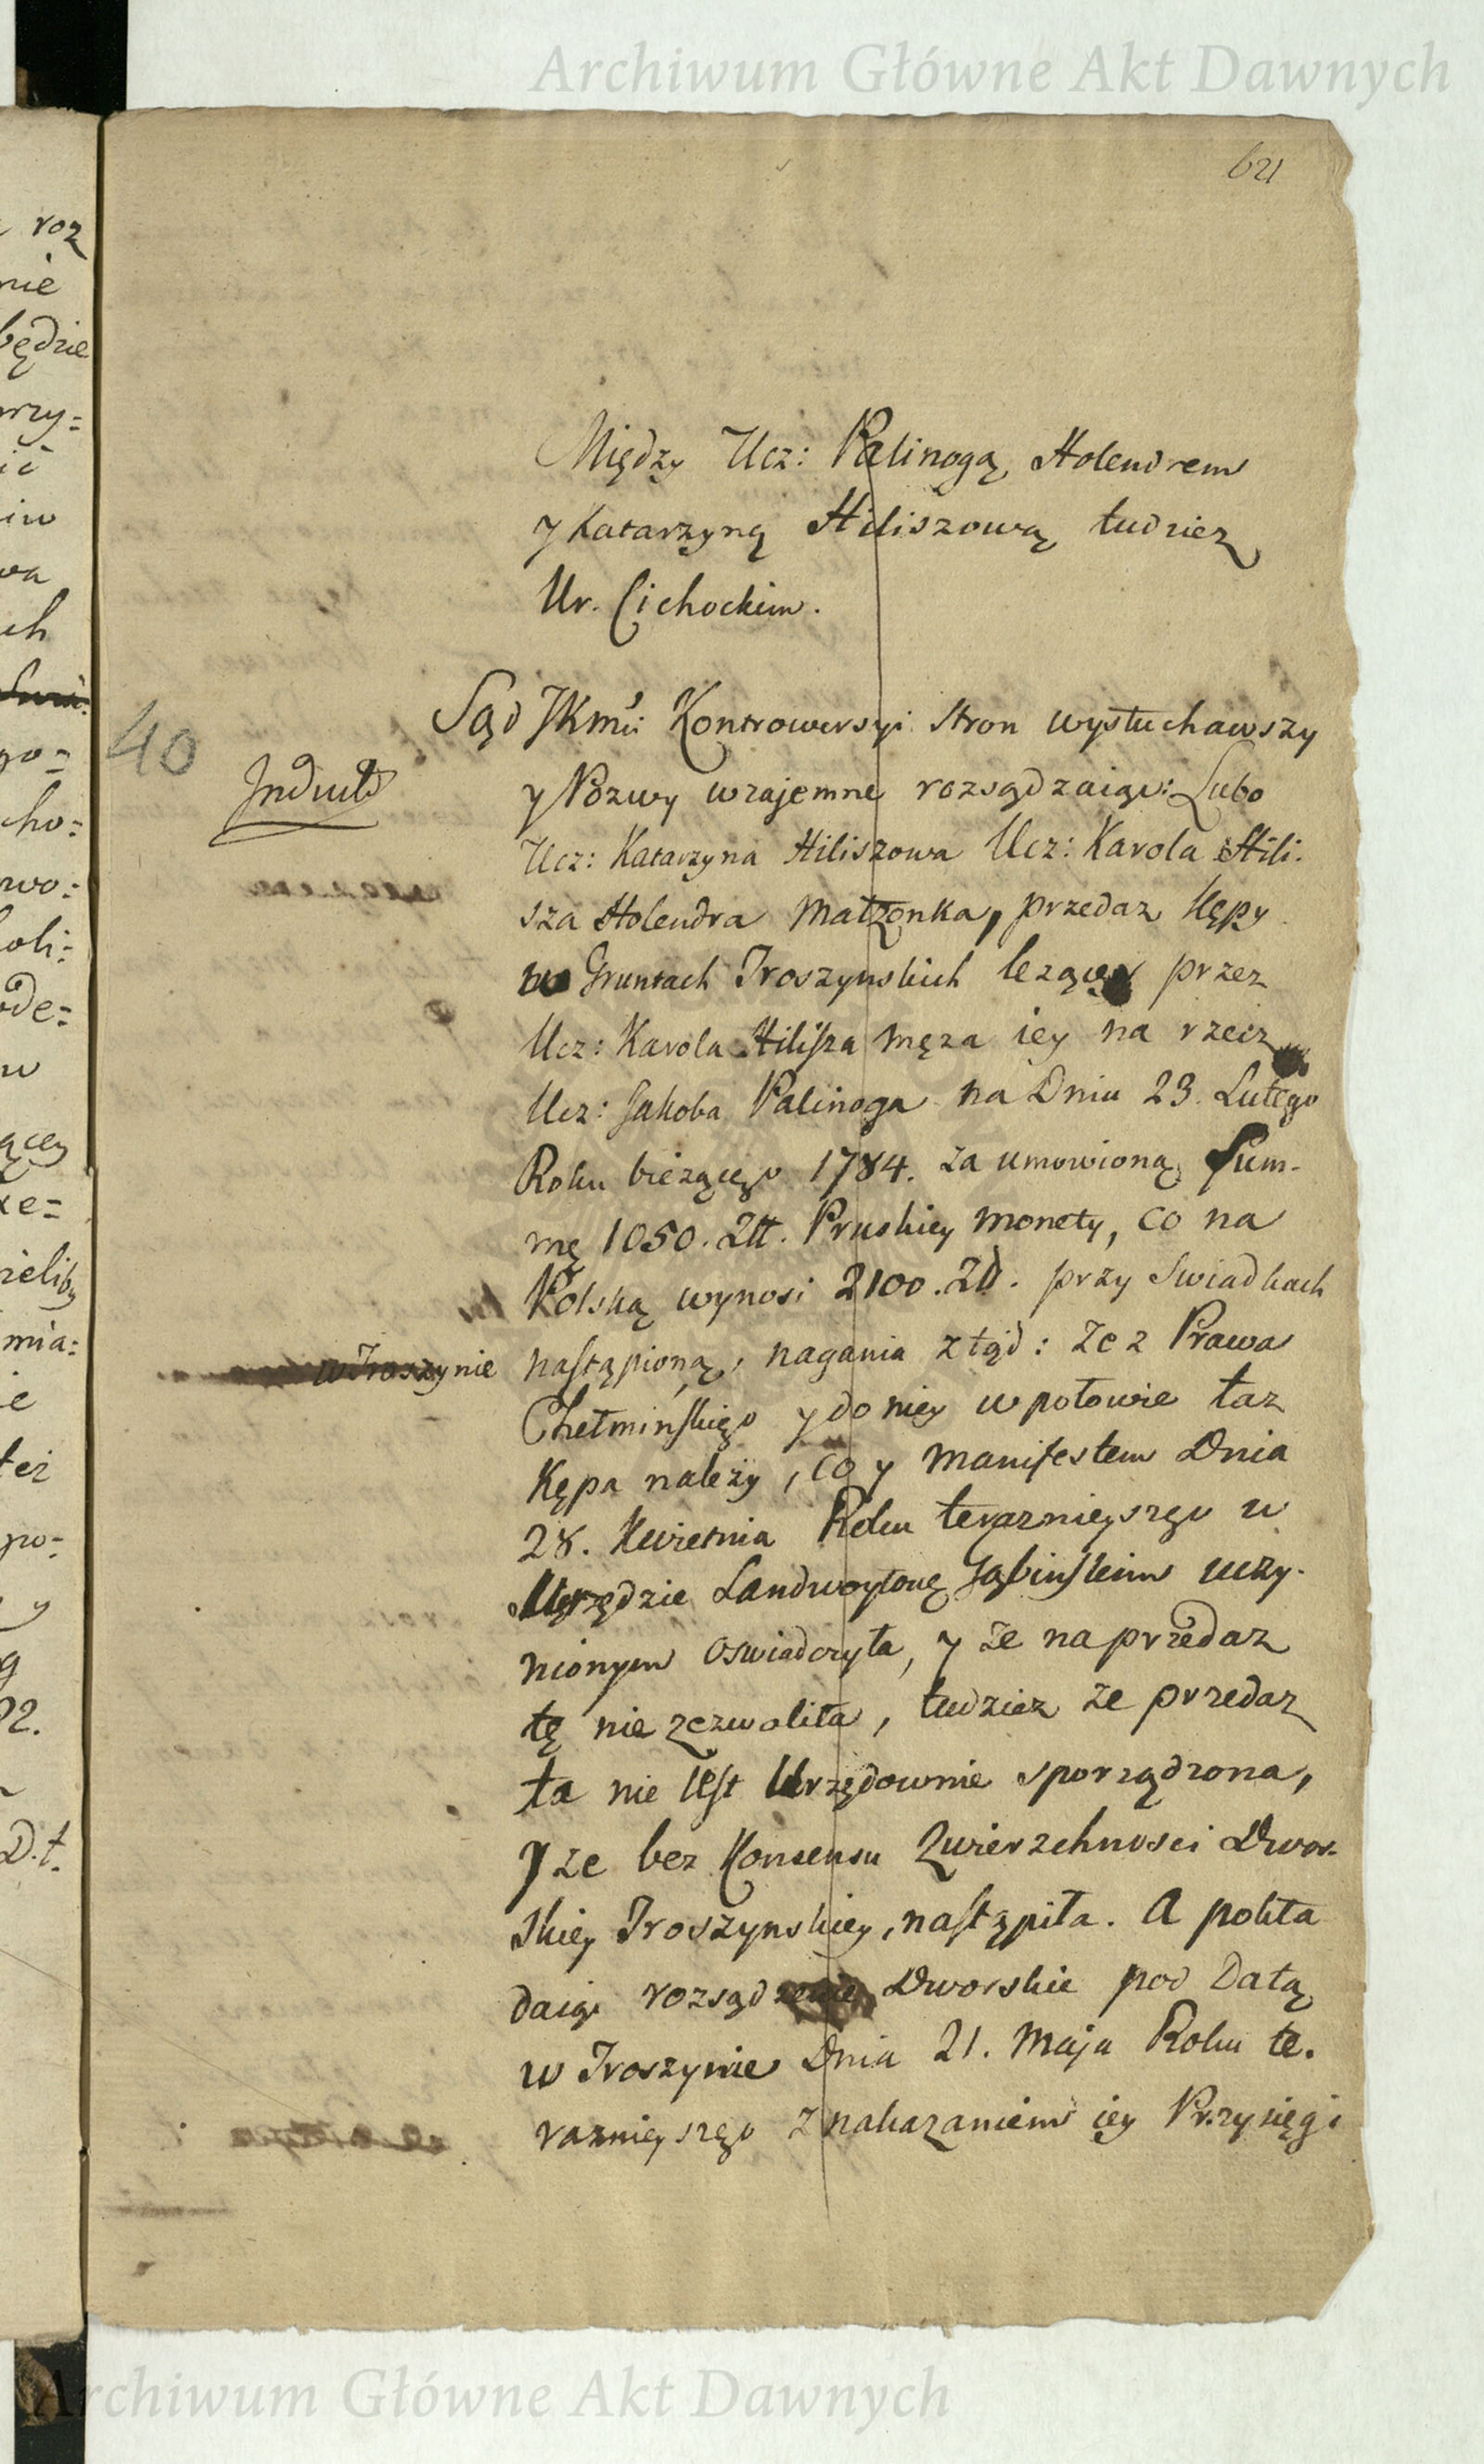 Archiwum Główne Akt Dawnych
621
roz
nie
będzie
przy=
ić
iw
wa
ch
go=
cho=
two=
holi=
ode=
w
ącey
xe=
mia=
ie
teź
po=
y
g
92.
D.t.
Między Ucz: Palinogą Holendrem
y Katarzyną Hiliszową tudziez
Ur. Cichockim.
40
Indult
Sąd JKmci Kontrowersyi stron wysłuchawszy
y Pozwy wzajemne rozsądzaiąc: Lubo
Ucz: Katarzyna Hiliszowa Ucz: Karola Hili-
sza Holendra Małzonka, przedaz Kępy
w Gruntach Troszynskich lezącey przez
Ucz: Karola Hilisza męza iey na rzecz
Ucz: Jakoba Palinoga na Dniu 23. Lutego
Roku bieżącego 1784. za umowioną Sum-
mę 1050. Złł. Pruskiey monety, co na
Polską wynosi 2100. Zł. przy Swiadkach
w Troszynie nastąpioną, nagania ztąd: ze z Prawa
Chełmińskiego y do niey w połowie taz
Kępa należy, co y Manifestem Dnia
28. Kwietnia Roku terazniejszego w
Urzędzie Landwoytow. Gąbińskim uczy-
nionym oswiadczyła, y że na przedaz
tę nie zezwoliła, tudziez ze przedaz
ta nie iest Urzędownie sporządzona,
y ze bez Konsensu Zwierzchnosci Dwor-
skiey Troszynskiey, nastąpiła. A pokła
daiąc rozsądzenie Dworskie pod Datą
w Troszynie Dnia 21. Maja Roku te-
raznieyszego z nakazaniem iey Przysięgi
Archiwum Główne Akt Dawnych